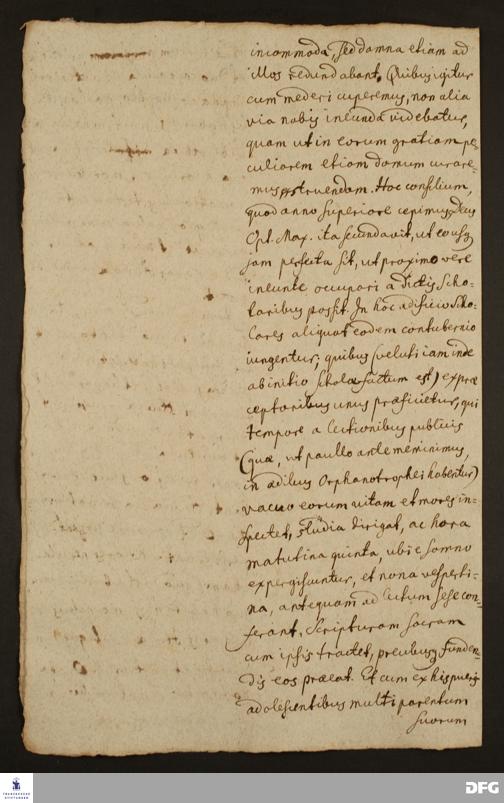 incommoda, sed damna etiam ad
illos redundabant. Quibus igitur
cum mederi cuperemus, non alia
via nobis ineunda videbatur,
quam ut in eorum gratiam pe-
culiarem etiam domum curare-
mus exstruendam. Hoc consilium,
quod anno superiore cepimus, Deus
Opt. Max. ita secundavit, ut eousq;
jam perfecta sit, ut proximo vere
ineunte occupari a dictis Scho-
laribus possit. In hoc aedificio Scho-
lares aliquot eodem contubernio
iungentur; quibus (veluti iam inde
ab initio scholae factum est) ex prae
ceptoribus unus praeficietur, qui
tempore a lectionibus publicis
(quae, ut paullo ante meminimus,
in aedibus Orphanotrophei habentur)
vacuo eorum vitam et mores in-
spectet, studia dirigat, ac hora
matutina quinta, ubi e somno
expergiscuntur, et nona vesperti-
na, antequam ad lectum sese con-
ferant, Scripturam sacram
cum ipsis tractet, precibusq; funden-
dis eos praeeat. Et cum ex his pueris
adolescentibus multi parentum
suorum
FRANCKESCHE
STIFTUNGEN
DFG